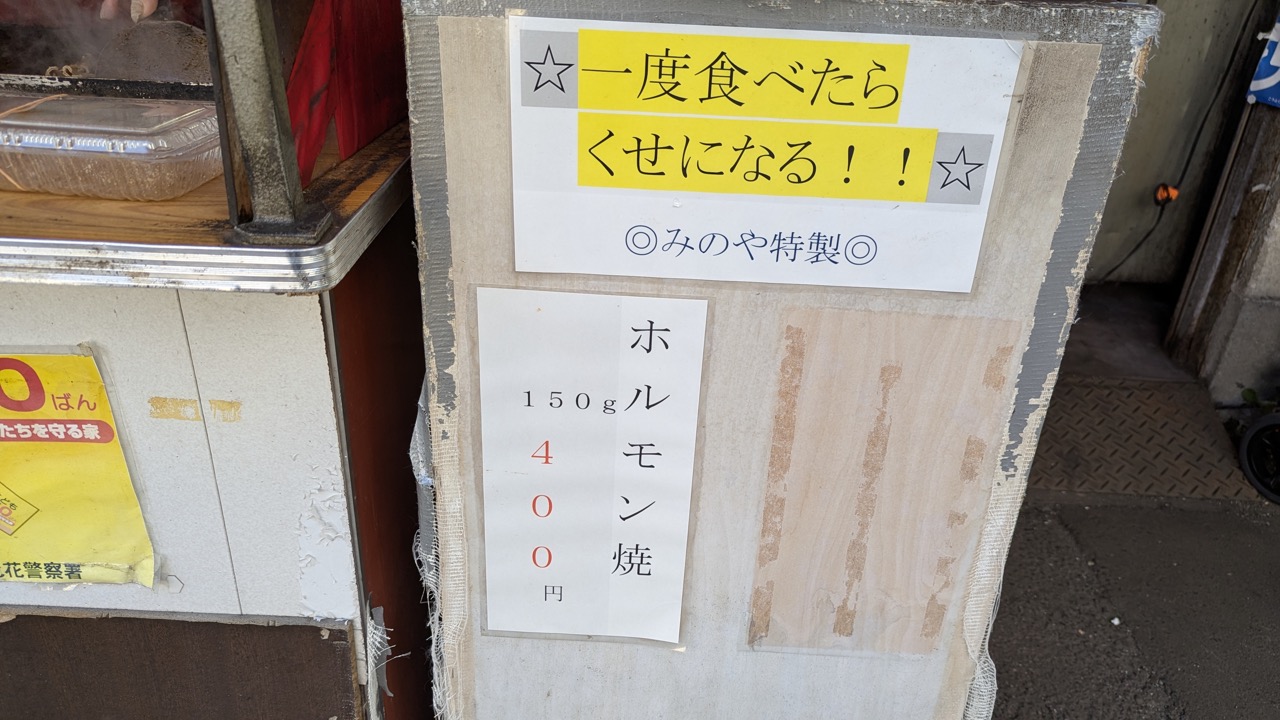 ☆一度食べたら
くせになる！！☆
◎みのや特製◎
ホルモン焼
１５０ｇ
４００
円
０ばん
たちを守る家
花警察署